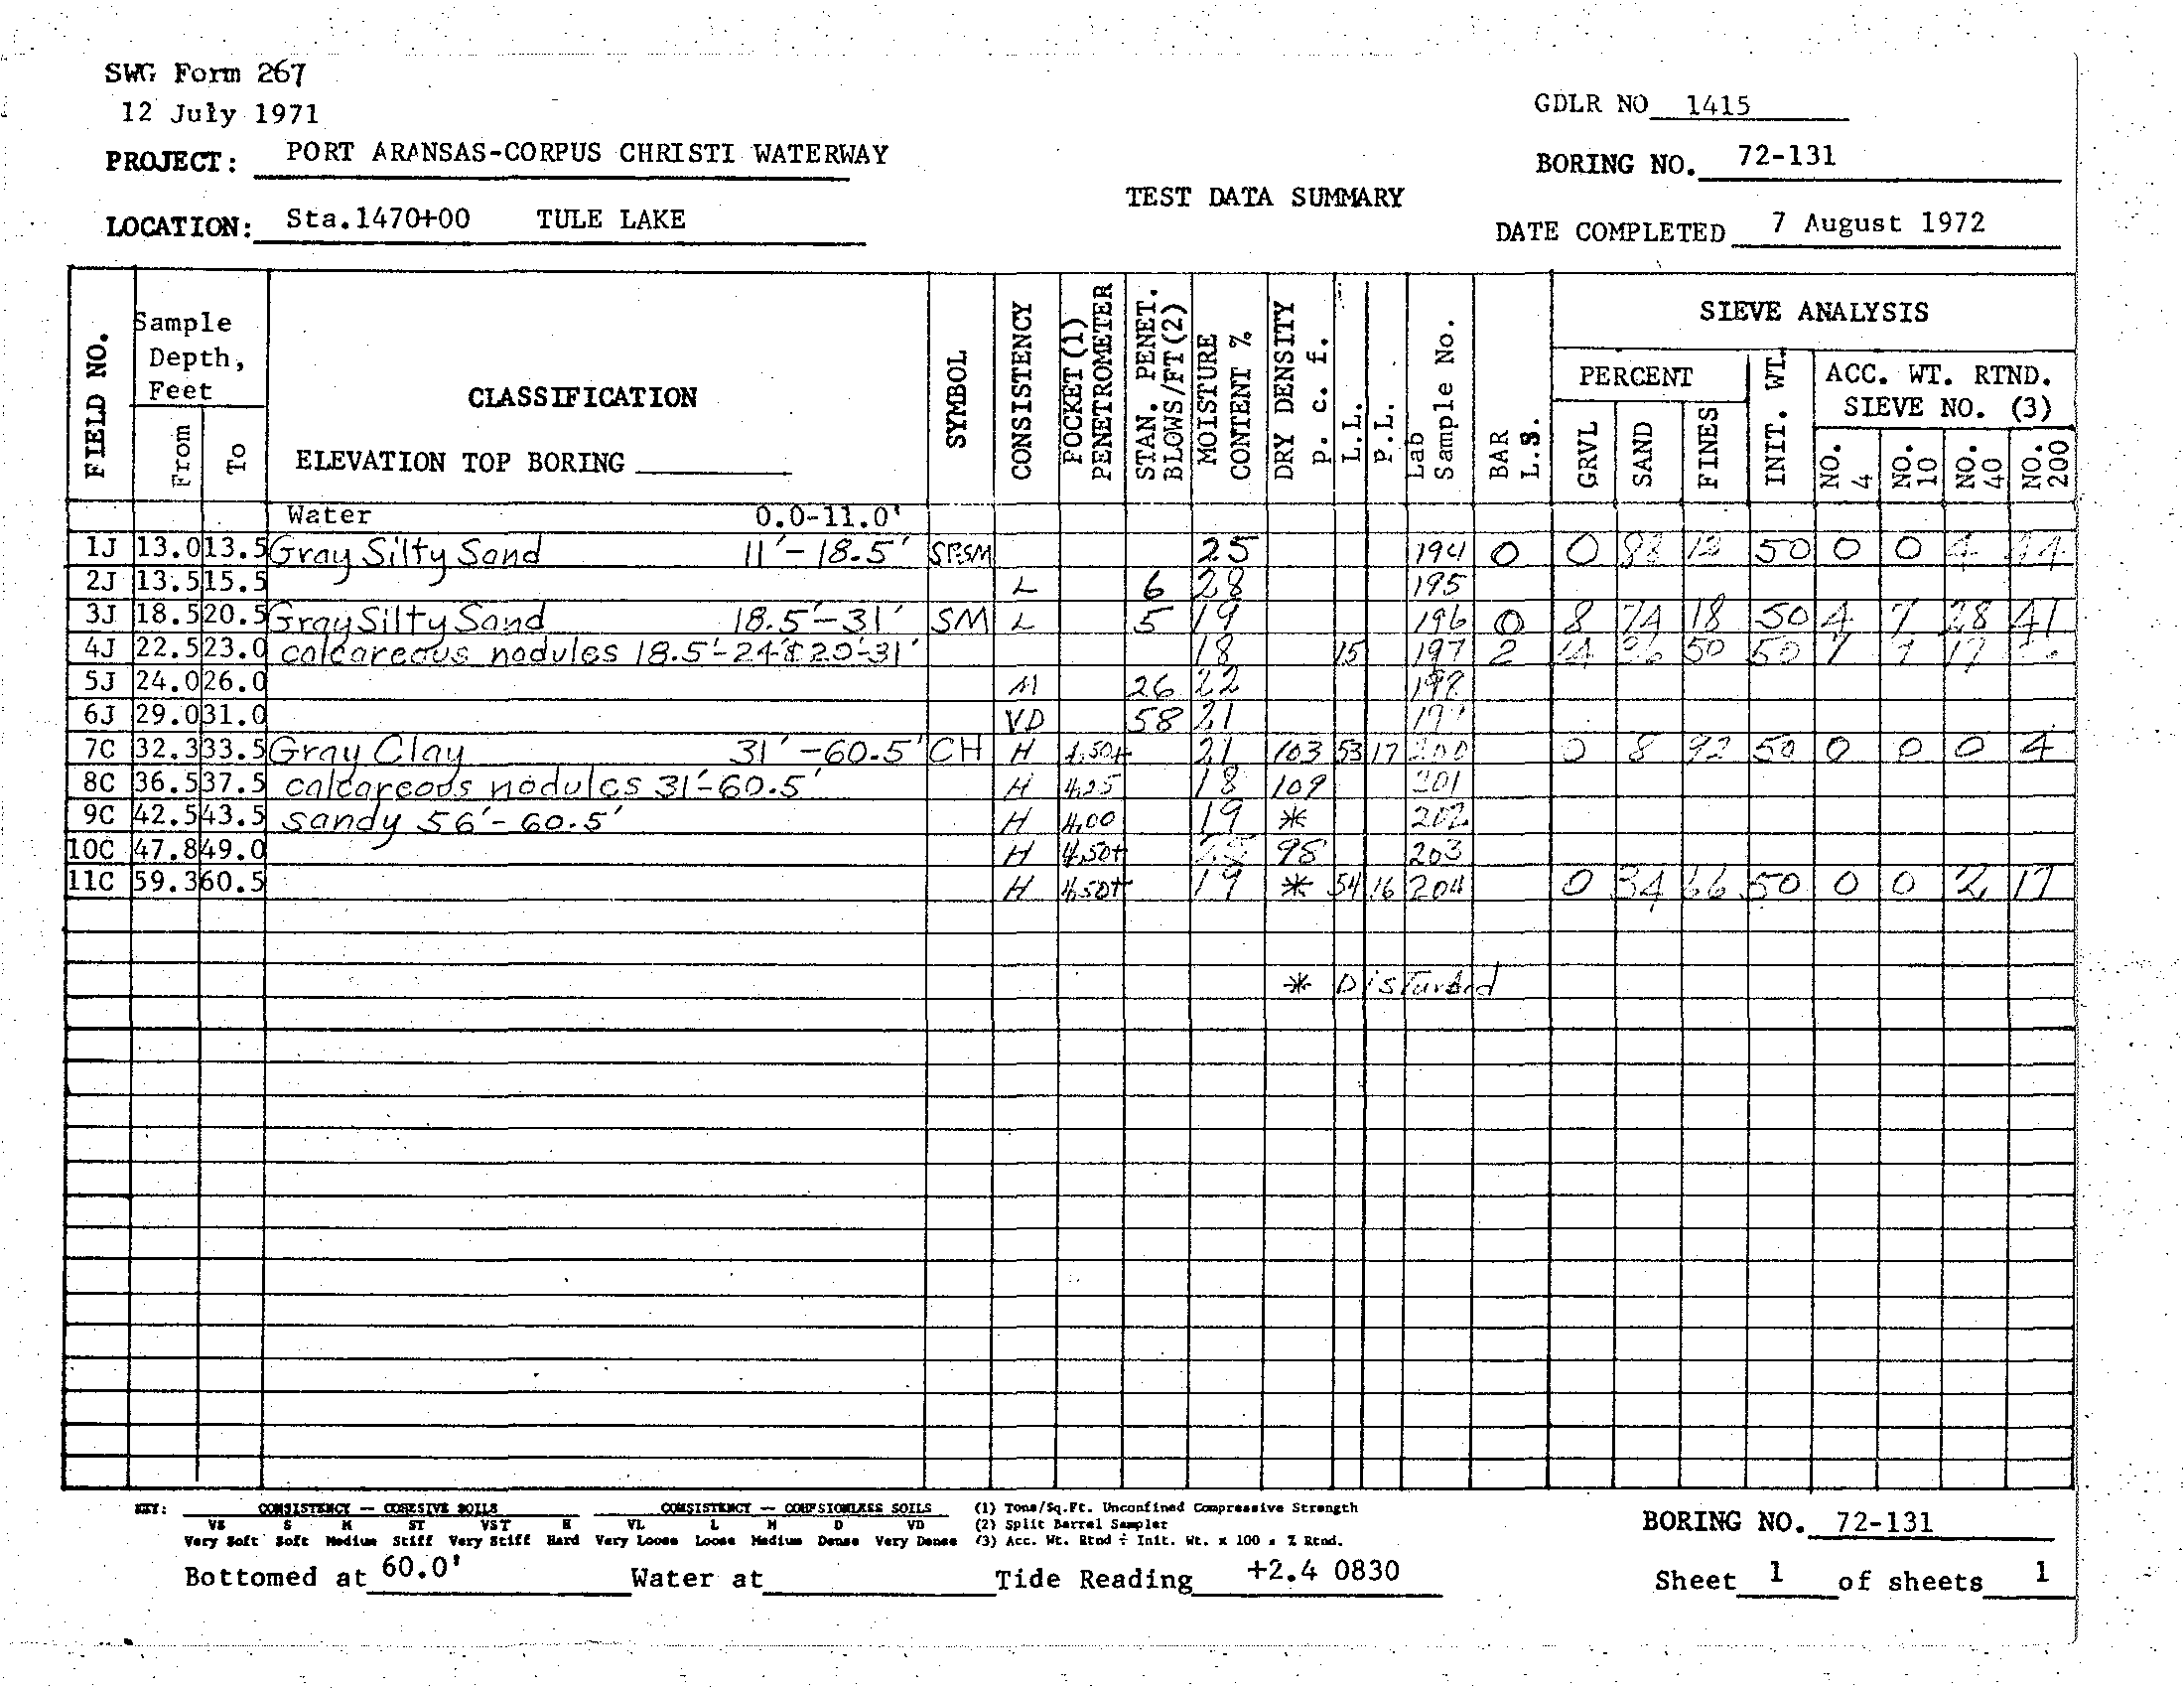 SWG Form 267
12 July 1971
GDLR NO 1415
PROJECT: PORT ARANSAS-CORPUS CHRISTI WATERWAY
BORING NO. 72-131
TEST DATA SUMMARY
LOCATION: Sta.1470+00 TULE LAKE
DATE COMPLETED 7 August 1972
FIELD NO.
Sample Depth, Feet
From
To
CLASSIFICATION
ELEVATION TOP BORING
SYMBOL
CONSISTENCY
POCKET (1) PENETROMETER
STAN. PENET. BLOWS/FT(2)
MOISTURE CONTENT %
DRY DENSITY p. c. f.
L.L.
P.L.
Lab Sample No.
BAR L.S.
SIEVE ANALYSIS
PERCENT
GRVL
SAND
FINES
INIT. WT.
ACC. WT. RTND.
SIEVE NO. (3)
NO. 4
NO. 10
NO. 40
NO. 200
Water 0.0-11.0'
1J 13.0 13.5 Gray Silty Sand 11'-18.5' SP-SM 25 194 0 0 88 12 50 0 0 4 44
2J 13.5 15.5 L 6 28 195
3J 18.5 20.5 Gray Silty Sand 18.5'-31' SM L 5 19 196 0 8 74 18 50 4 7 28 41
4J 22.5 23.0 calcareous nodules 18.5'-24' 18 15 197 2 14 36 50 50 7 17
5J 24.0 26.0 M 26 22 198
6J 29.0 31.0 VD 58 21
7C 32.3 33.5 Gray Clay 31'-60.5' CH H 4.50+ 21 103 53 17 200 0 8 92 50 0 0 0 4
8C 36.5 37.5 calcareous nodules 31'-60.5' H 4.25 18 109 201
9C 42.5 43.5 sandy 56'-60.5' H 4.00 19 * 202
10C 47.8 49.0 H 4.50+ 98 203
11C 59.3 60.5 H 4.50+ 19 * 54 16 204 0 34 66 50 0 0 2 17
* Disturbed
KEY: CONSISTENCY — COHESIVE SOILS CONSISTENCY — COHESIONLESS SOILS (1) Tons/Sq.Ft. Unconfined Compressive Strength
VS S M ST VST H VL L M D VD (2) Split Barrel Sampler
Very Soft Soft Medium Stiff Very Stiff Hard Very Loose Loose Medium Dense Very Dense (3) Acc. Wt. Rtnd ÷ Init. Wt. x 100 = % Rtnd.
BORING NO. 72-131
Bottomed at 60.0' Water at Tide Reading +2.4 0830
Sheet 1 of sheets 1